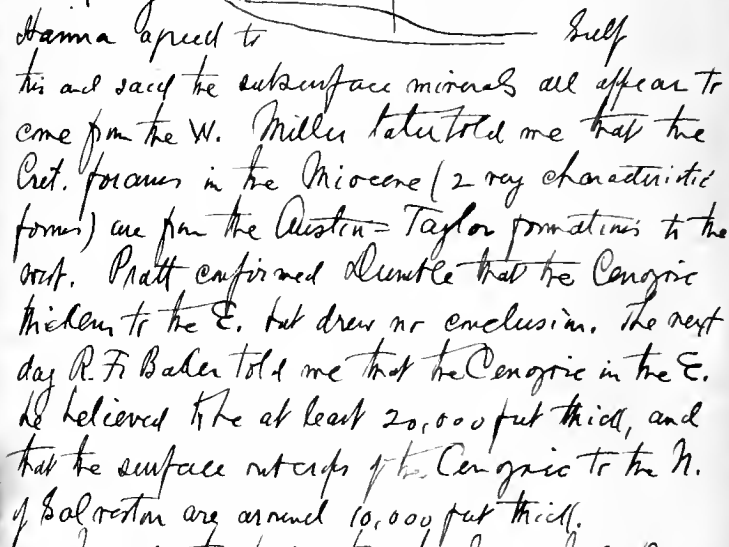 Hanna agreed to Gulf
this and said the subsurface minerals all appear to
come from the W. Miller later told me that the
Cret. forams in the Miocene (2 very characteristic
forms) are from the Austin = Taylor formations to the
west. Pratt confirmed Dumble that the Cenozoic
thickens to the E. but drew no conclusion. The next
day R. F. Baker told me that the Cenozoic in the E.
he believed to be at least 20,000 feet thick, and
that the surface outcrops of the Cenozoic to the N.
of Galveston are around 10,000 feet thick.